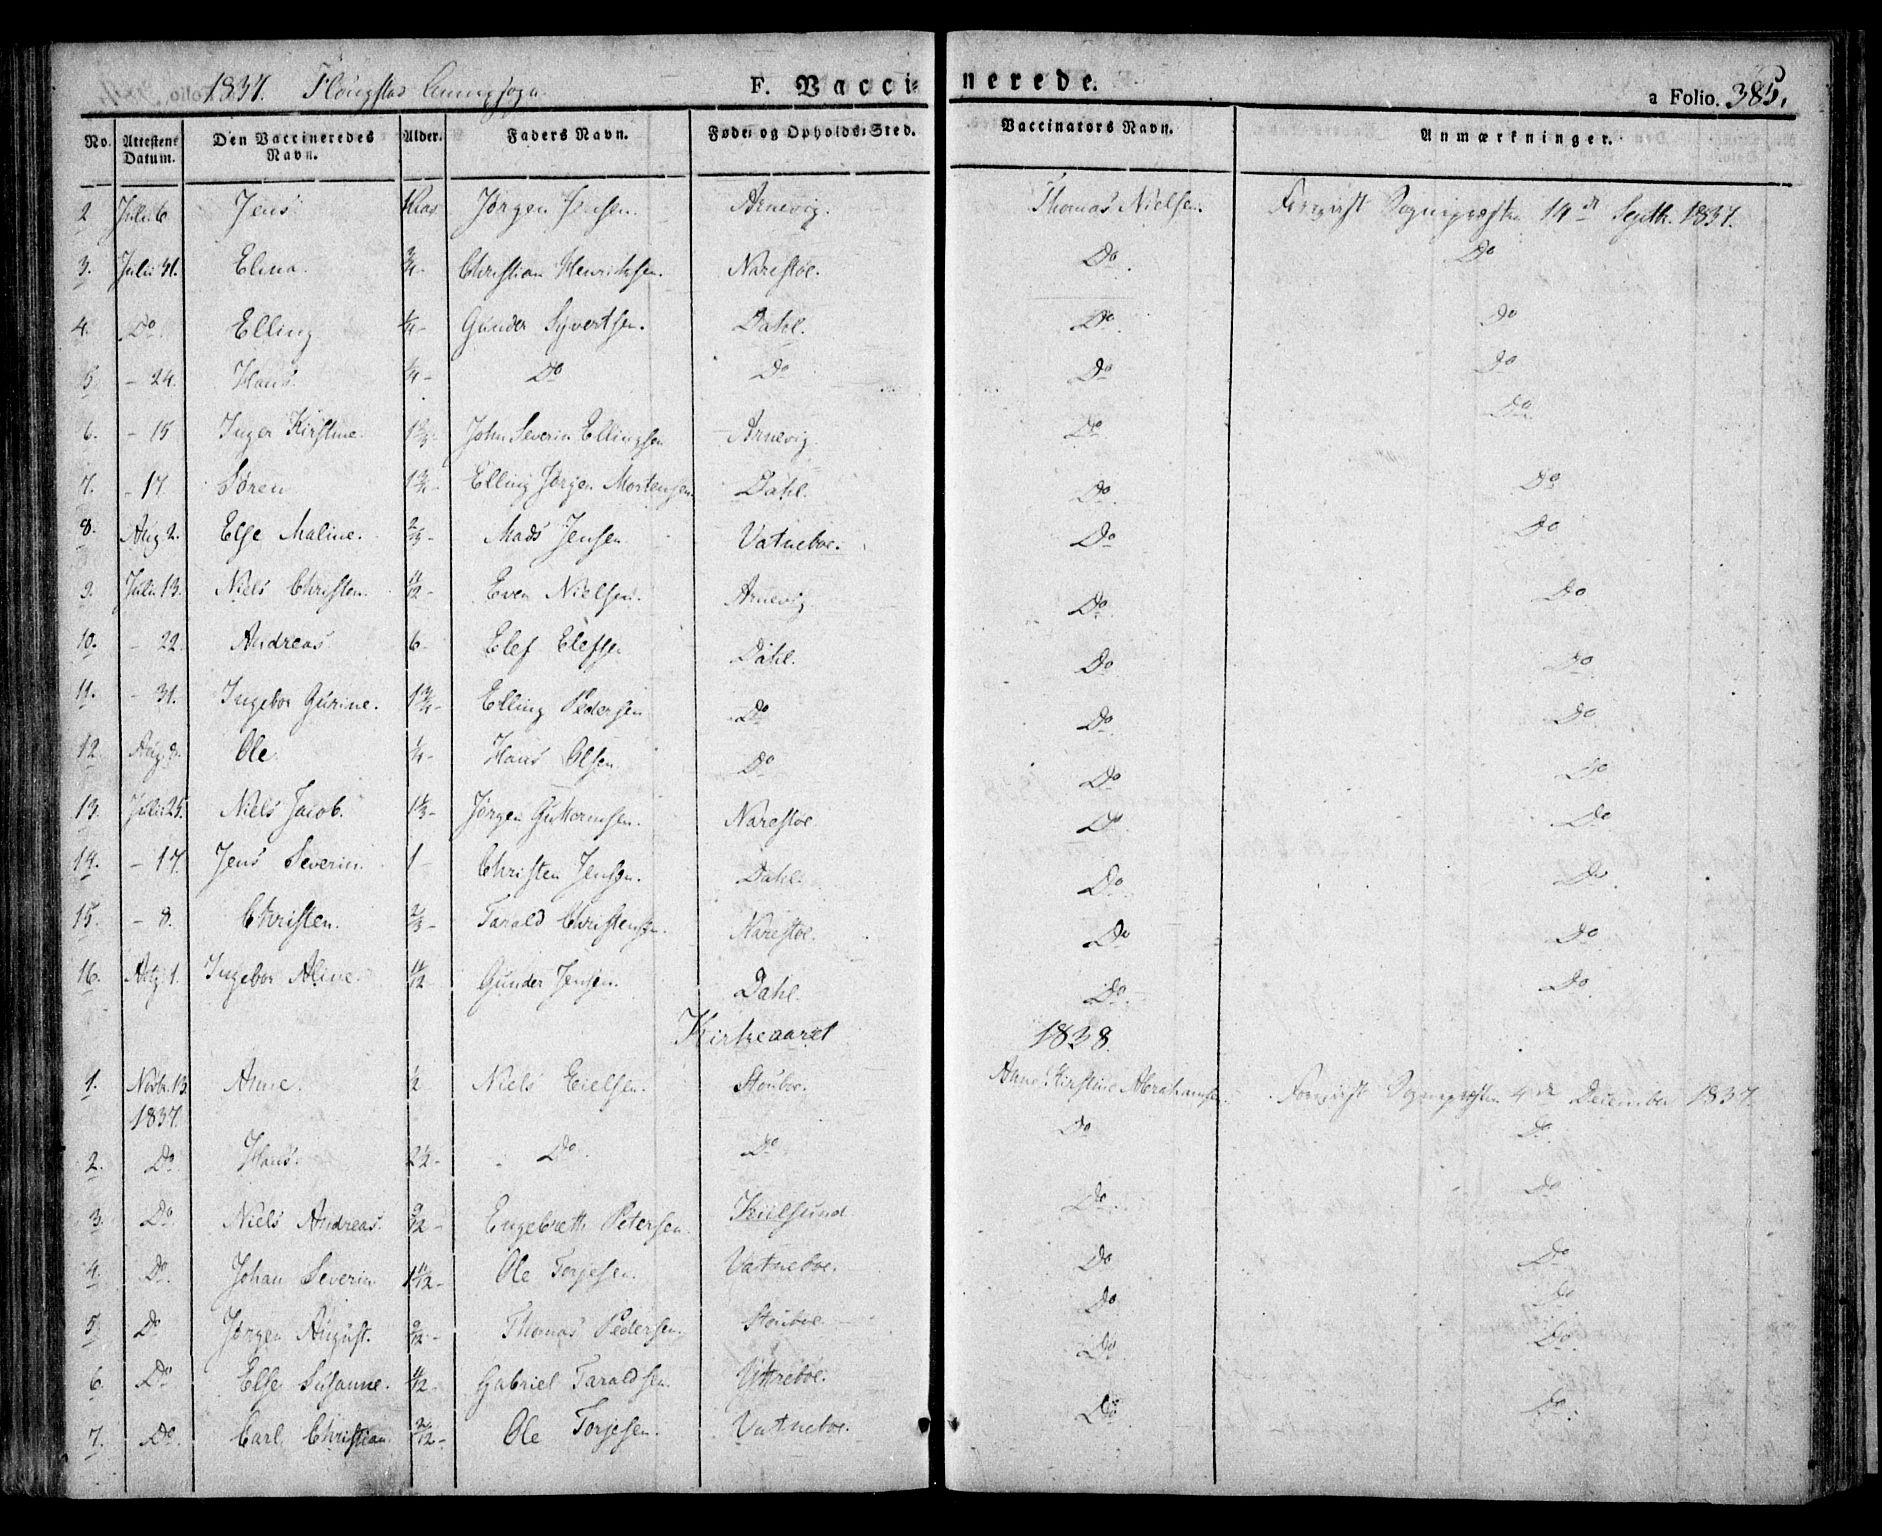 1837. Flougstad Annexsogn.
F. Vaccinerede.
a Folio. 385.
No. Attestens Datum. Den Vaccineredes Navn. Alder. Faders Navn. Føde- og Opholds-Sted. Vaccinators Navn. Anmærkninger.
2 Juli 6 Jens Jørgen Jensen. Arnevig. Thomas Nielsen. Sognepræsten 14de Septb. 1837.
3. Juli 31. Elina. 3/4- Christian Henriksen. Narestøe. Do Do
4. Do. Elling 1/4- Gunder Syvertsen. Dahl. Do Do
5 - 24. Hans. 1/4- Do Do Do Do
6. - 15 Inger Kirstine. 1 2/3- John Severin Ellingsen Arnevig Do Do
7. - 17 Søren 1 3/4- Elling Jørgen Mortensen Dahl. Do Do
8. Aug 2. Else Maline. 2/3- Mads Jensen Vatneboe. Do Do
9. Juli 13. Niels Christen. 11/12- Even Nielsen. Arnevig Do Do
10. - 22. Andreas 6- Elef Elefsen Dahl. Do Do
11. - 31. Ingebor Gurine. 1 3/4- Elling Pedersen Do Do Do
12. Aug. 8. Ole 1/4- Hans Olsen. Do Do Do
13. Juli 25. Niels Jacob. 1 1/3- Jørgen Guttormsen. Narestøe Do Do
14. - 17. Jens Severin. 1- Christen Jensen. Dahl. Do Do
15. - 8. Christen. 2/3- Tarald Christensen. Narestøe. Do Do
16. Aug. 1. Ingebor Aline. 11/12 Gunder Jensen. Dahl. Do Do
Kirkeaaret 1838.
1. Novbr. 13. Anne. 1/2 Niels Eielsen. Stouboe. Anne Kirstine Abrahamsen. Sognepræsten 4de December 1837.
1837.
2. Do Hans. 2 1/2- Do Do Do Do
3. Do Niels Andreas. 9/12- Engebreth Petersen. Kiilsund Do Do
4. Do. Johan Severin 1 11/12- Ole Torjesen. Vatneboe. Do Do
5 Do Jørgen August. 9/12- Thomas Pedersen. Stouboe Do Do
6. Do Else Susanne. Gabriel Taraldsen. Yttreboe. Do Do
7. Do. Carl Christian Ole Torjesen. Vatneboe. Do Do.